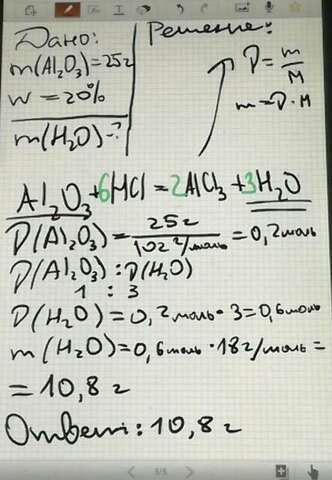 Дано:
m(Al₂O₃)=25г
w = 20%
m(H₂O)-?
Решение:
ν = m/M
m=ν·M
Al₂O₃+6HCl=2AlCl₃+3H₂O
ν(Al₂O₃)=25г/102г/моль=0,2моль
ν(Al₂O₃):ν(H₂O)
1 : 3
ν(H₂O)=0,2моль·3=0,6моль
m(H₂O)=0,6моль·18г/моль=
=10,8г
Ответ:10,8г
5/5